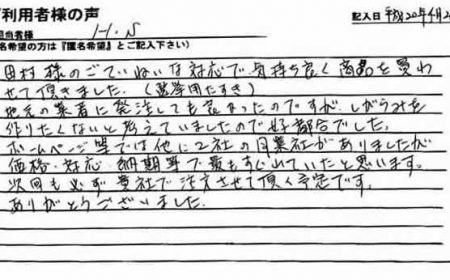 利用者様の声
記入日 平成20年4月2
担当者様 H.N
名希望の方は『匿名希望』とご記入下さい)
田村様のごていねいな対応で気持ち良く商品を買わ
せて頂きました。(選挙用たすき)
地元の業者に発注しても良かったのですが、しがらみを
作りたくないと考えていましたので好都合でした。
ホームページ等では他に2社の同業社がありましたが
価格・対応・納期等で最もすぐれていたと思います。
次回も必ず貴社で注文させて頂く予定です。
ありがとうございました。